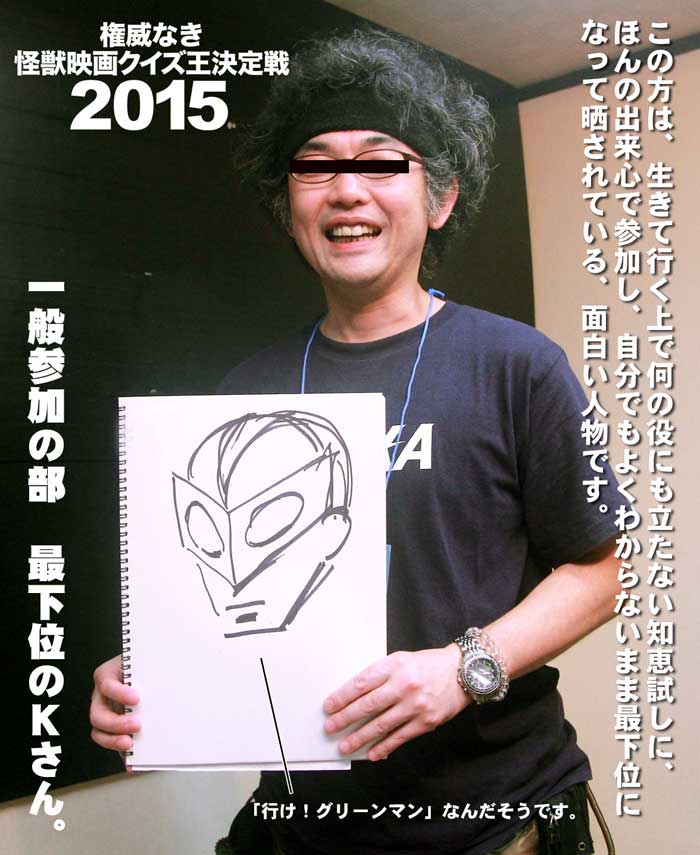 権威なき
怪獣映画クイズ王決定戦
2015
この方は、生きて行く上で何の役にも立たない知恵試しに、
ほんの出来心で参加し、自分でもよくわからないまま最下位に
なって晒されている、面白い人物です。
一般参加の部　最下位のKさん。
KA
「行け！グリーンマン」なんだそうです。